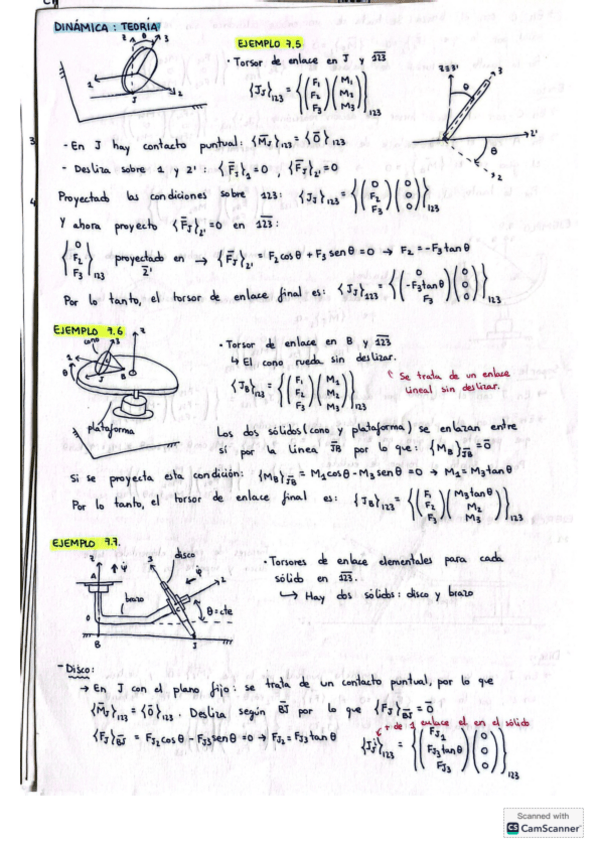 DINÁMICA: TEORÍA
EJEMPLO 7.5
· Torsor de enlace en J y 123
{J_J}123 = {(F1 F2 F3)(M1 M2 M3)}123
- En J hay contacto puntual: {M̄_J}123 = {0̄}123
- Desliza sobre 1 y 2': {F̄_J}1 = 0, {F̄_J}2' = 0
Proyectado las condiciones sobre 123: {J_J}123 = {(0 F2 F3)(0 0 0)}123
Y ahora proyecto {F̄_J}2' = 0 en 123:
{0 F2 F3}123 proyectado en 2' → {F̄_J}2' = F2 cos θ + F3 sen θ = 0 → F2 = -F3 tan θ
Por lo tanto, el torsor de enlace final es: {J_J}123 = {(0 -F3 tan θ F3)(0 0 0)}123
EJEMPLO 7.6
cono
plataforma
· Torsor de enlace en B y 123
↳ El cono rueda sin deslizar.
{J_B}123 = {(F1 F2 F3)(M1 M2 M3)}123
Se trata de un enlace
lineal sin deslizar.
Los dos sólidos (cono y plataforma) se enlazan entre
sí por la línea JB por lo que: {M_B}JB = 0̄
Si se proyecta esta condición: {M_B}JB = M1 cos θ - M3 sen θ = 0 → M1 = M3 tan θ
Por lo tanto, el torsor de enlace final es: {J_B}123 = {(F1 F2 F3)(M3 tan θ M2 M3)}123
EJEMPLO 7.7.
disco
brazo
θ = cte
· Torsores de enlace elementales para cada
sólido en 123.
↳ Hay dos sólidos: disco y brazo
- Disco:
→ En J con el plano fijo: se trata de un contacto puntual, por lo que
{M̄_J}123 = {0̄}123. Desliza según BJ por lo que {F̄_J}BJ = 0̄
+ de 1 enlace el en el sólido
{F̄_J}BJ = FJ2 cos θ - FJ3 sen θ = 0 → FJ2 = FJ3 tan θ
{J_J}123 = {(FJ1 FJ3 tan θ FJ3)(0 0 0)}123
Scanned with
CS CamScanner